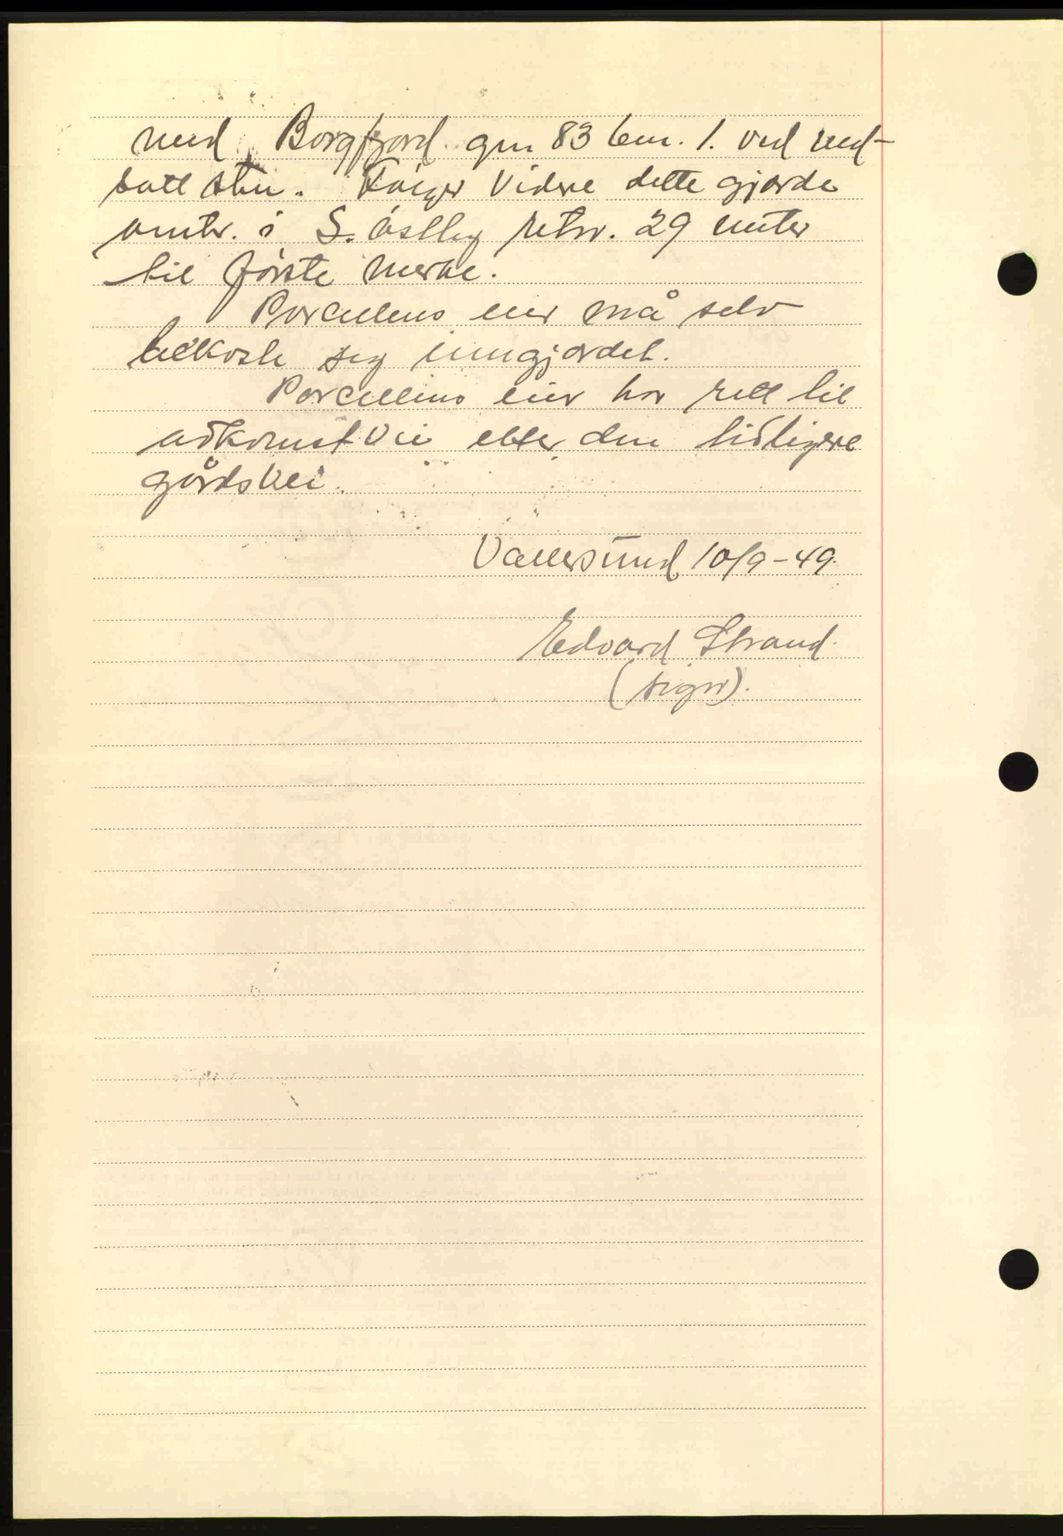 med Borgfjord gnr 83 bnr. 1. ved ned-
satt sten. Følger videre dette gjerde
omtr. i S. østlig retn. 29 meter
til første merke.
Parcellens eier må selv
bekoste seg inngjerdet.
Parcellens eier har rett til
adkomst vei etter den tidligere
gårdsvei.
Vallersund 10/9-49.
Edvard Strand.
(sign).